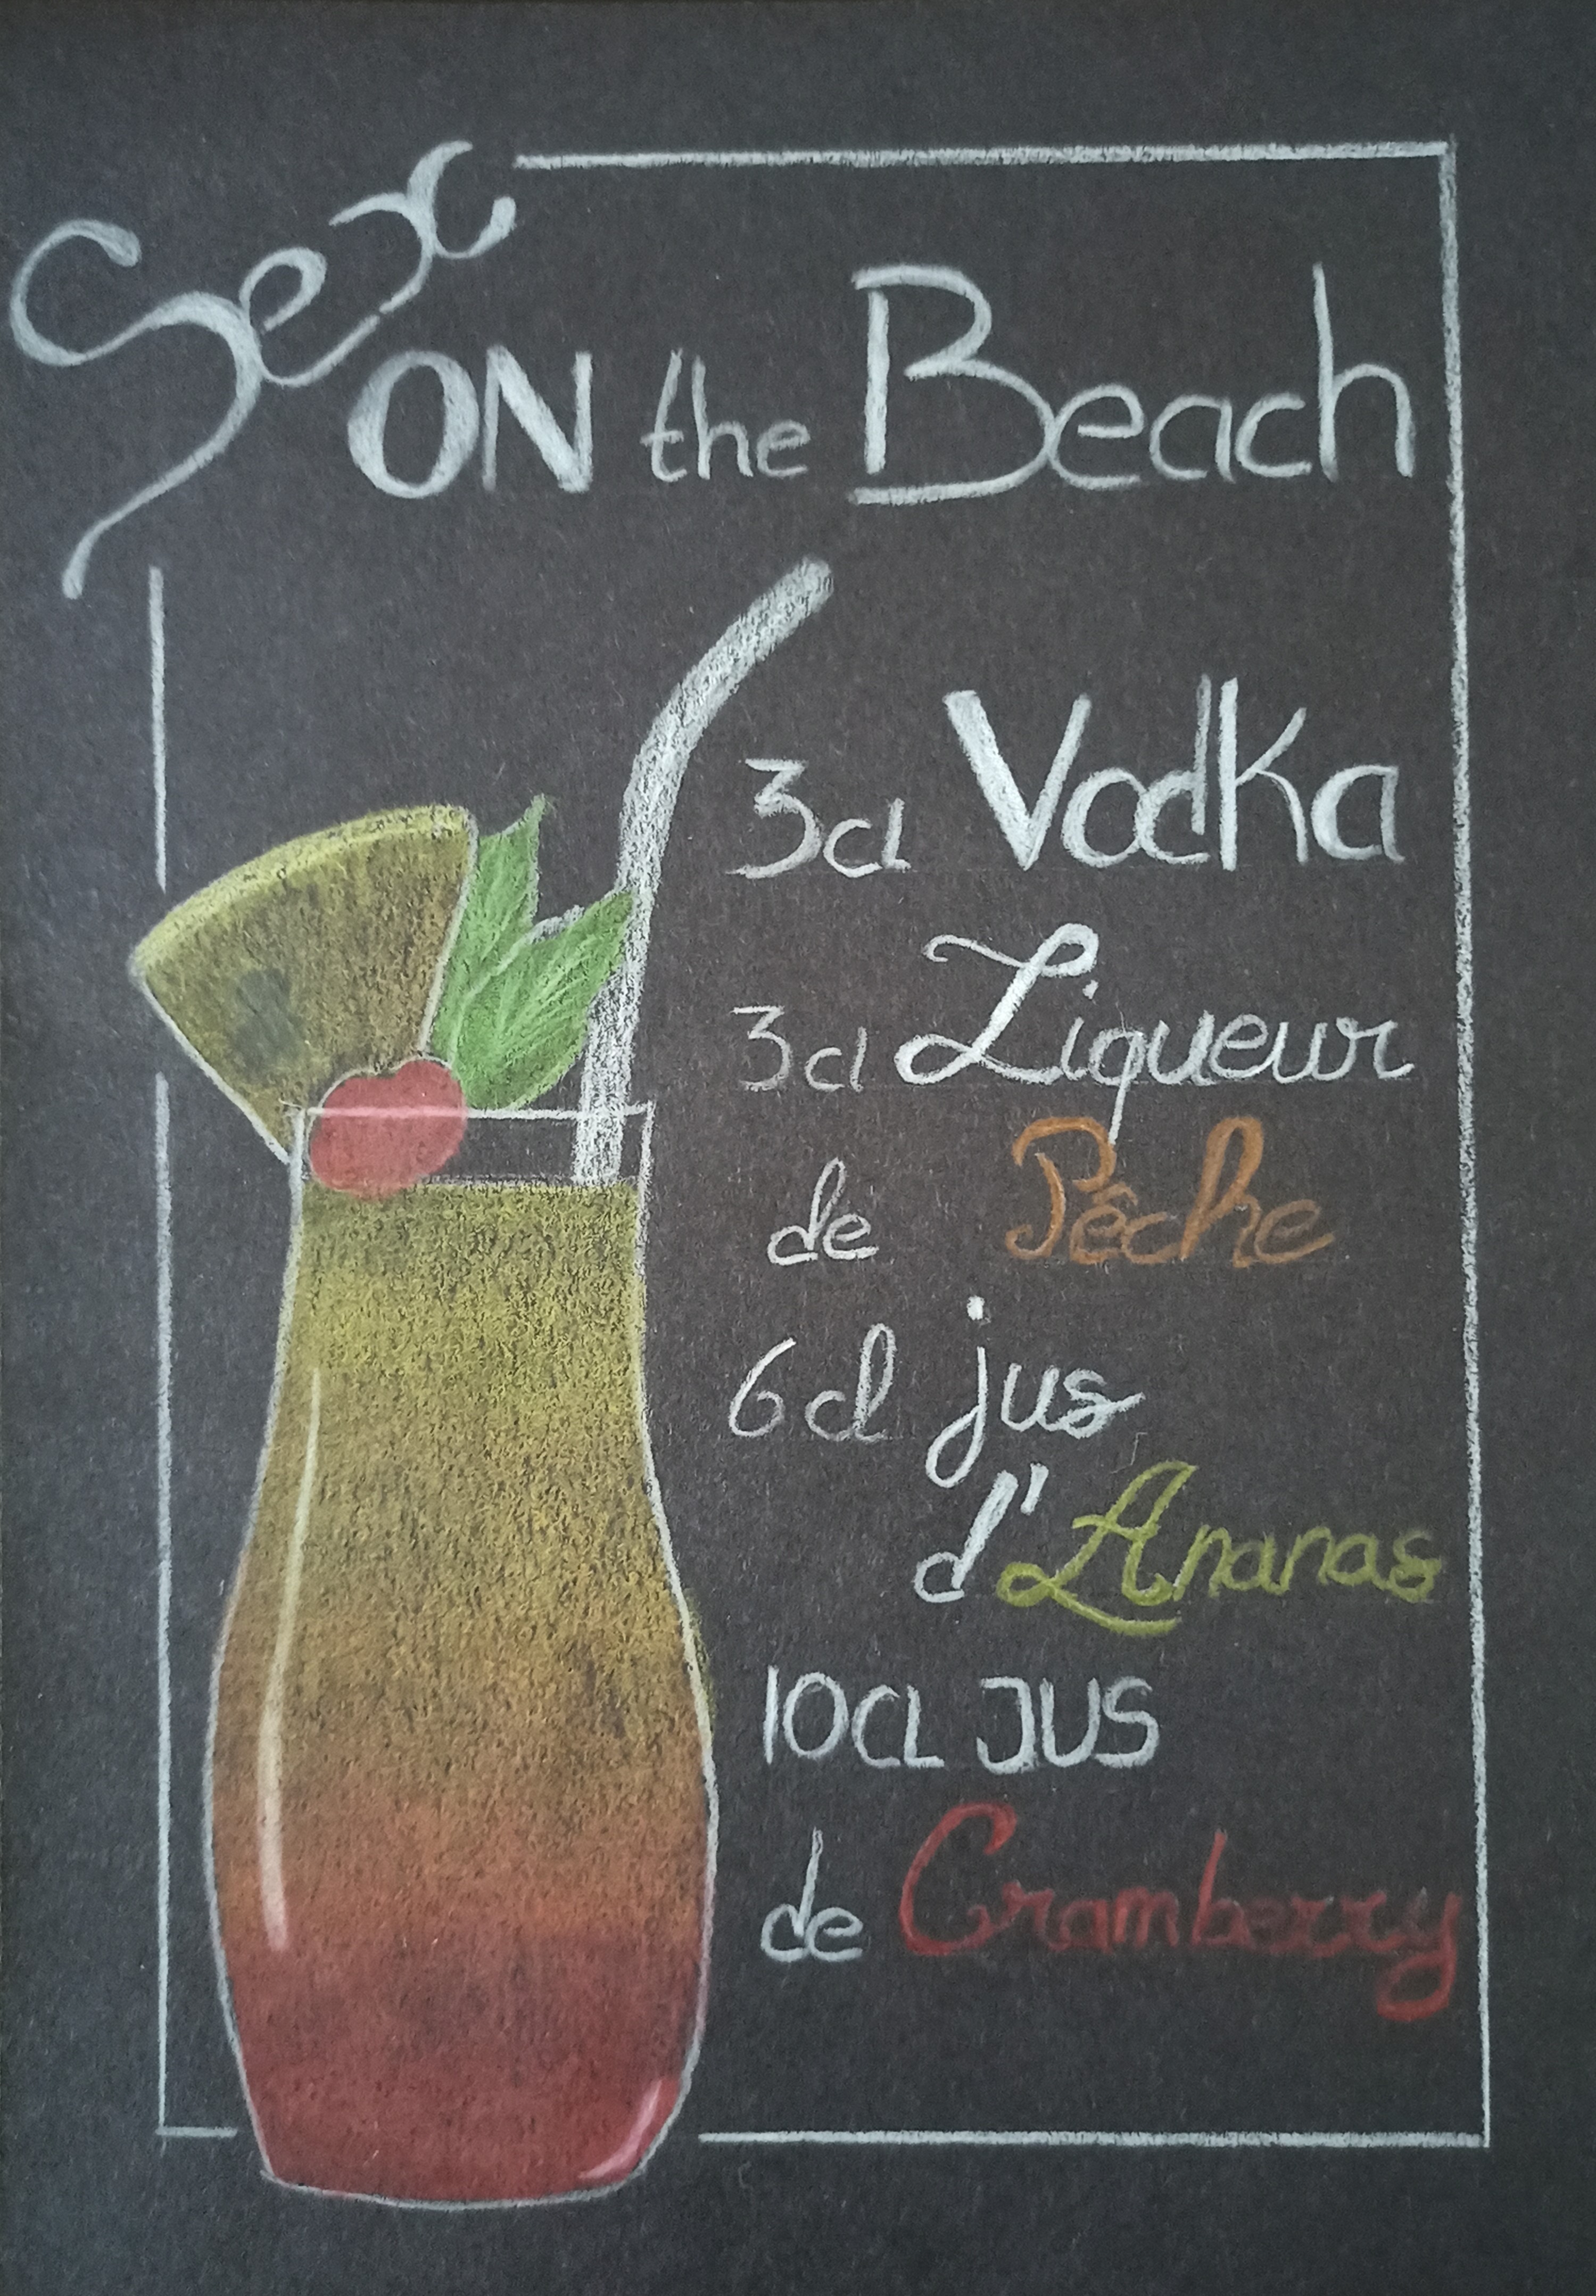 Sex
ON the Beach
3cl Vodka
3cl Liqueur
de Pêche
6cl jus
d'Ananas
10CL JUS
de Cramberry